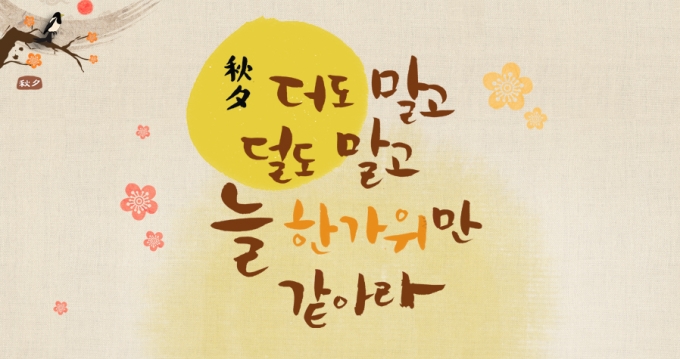 秋夕
秋夕
더도 말고
덜도 말고
늘 한가위만
같아라